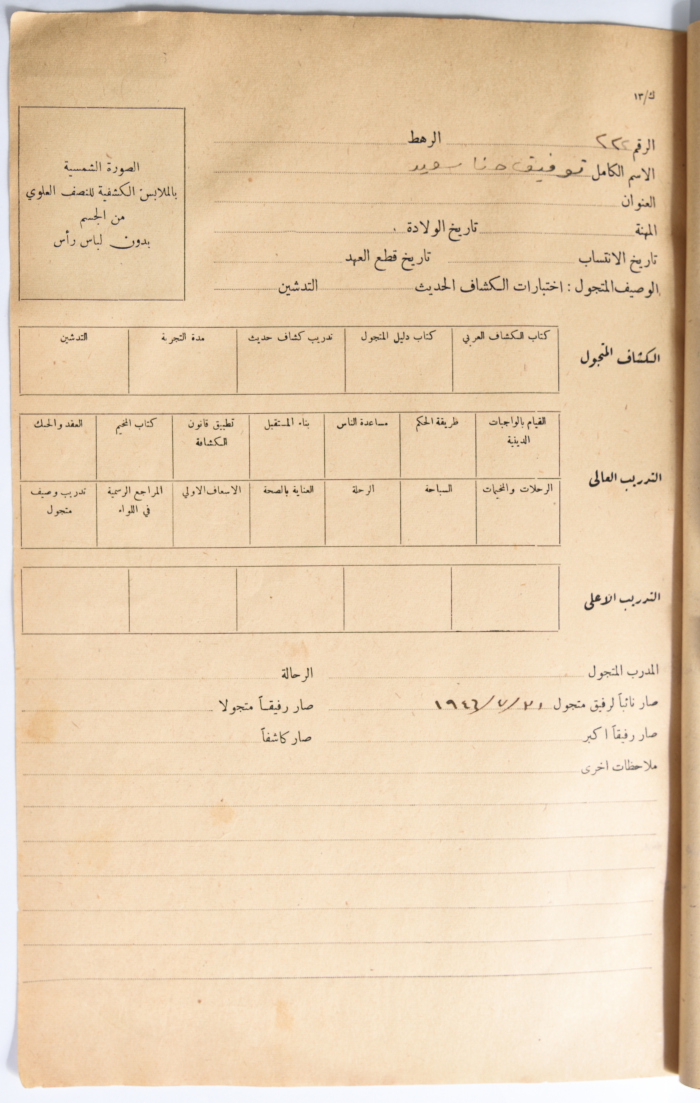 ك/١٣
الرقم ٢٢٢ الرهط
الاسم الكامل توفيق حنا سويد
العنوان
المهنة تاريخ الولادة
تاريخ الانتساب تاريخ قطع العهد
الوصيف المتجول : اختبارات الكشاف الحديث التدشين
الصورة الشمسية
بالملابس الكشفية للنصف العلوي
من الجسم
بدون لباس رأس
الكشاف المتجول
كتاب الكشاف العربي كتاب دليل المتجول تدريب كشاف حديث مدة التجربة التدشين
التدريب العالي
القيام بالواجبات الدينية طريقة الحكم مساعدة الناس بناء المستقبل تطبيق قانون الكشافة كتاب المخيم العقد والحبك
الرحلات والمخيمات السباحة الرحلة العناية بالصحة الاسعاف الاولي المراجع الرسمية في اللواء تدريب وصيف متجول
التدريب الاعلى
المدرب المتجول الرحالة
صار نائباً لرفيق متجول ١٩٤٦/٧/٢١ صار رفيقاً متجولا
صار رفيقاً اكبر صار كاشفاً
ملاحظات اخرى